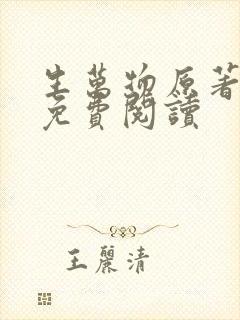 生萬物原著
免費閱讀
王麗清